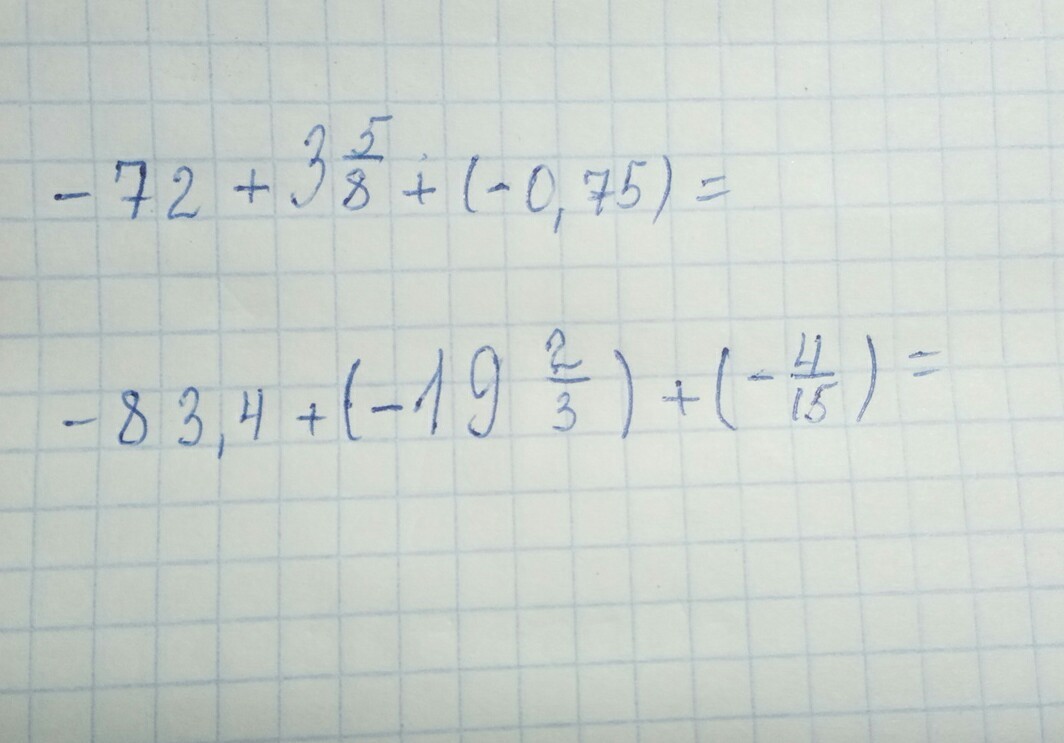 -72 + 3 5/8 + (-0,75) =
-83,4 + (-19 2/3) + (-4/15) =